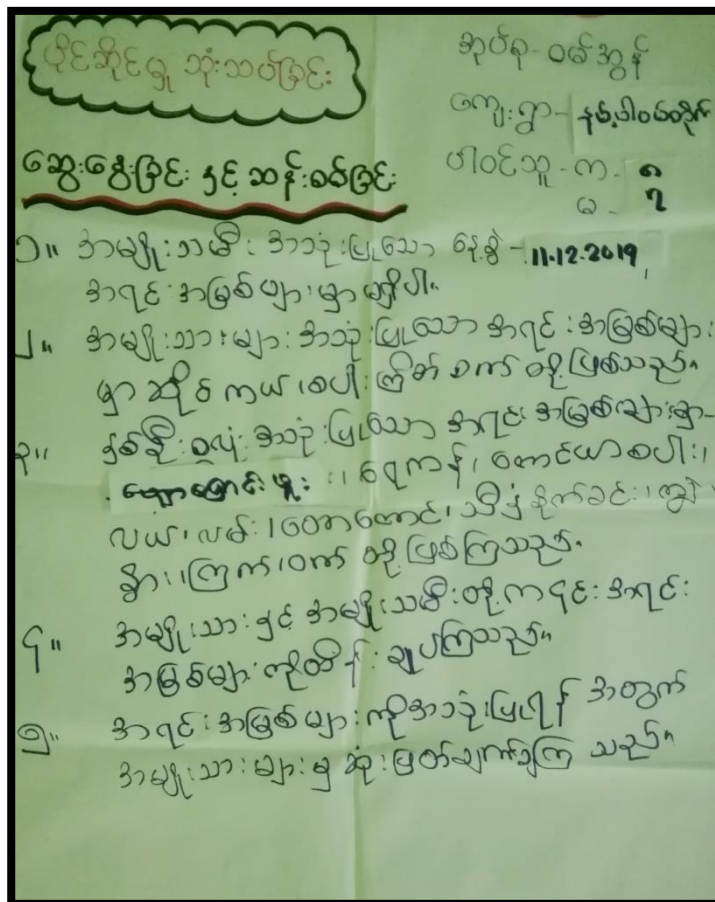 ပိုင်ဆိုင်မှု သုံးသပ်ခြင်း
အုပ်စု - ဝမ်အွန်
ကျေးရွာ - နမ့်ပါဝမ်တိုက်
ပါဝင်သူ - က - ၈
မ - ၇
ဆွေးနွေးခြင်း နှင့် ဆန်းစစ်ခြင်း
၁။ အမျိုးသမီး အသုံးပြုသော နေ့စွဲ - 11.12.2019
အရင်းအမြစ်များမှာ မရှိပါ။
၂။ အမျိုးသားများ အသုံးပြုသော အရင်းအမြစ်များ
မှာ ဆိုင်ကယ်၊ စပါးကြိတ်စက် တို့ဖြစ်သည်။
၃။ နှစ်ဦးစလုံး အသုံးပြုသော အရင်းအမြစ်များမှာ-
ရေကန်၊ တောင်ယာစပါး၊
လယ်၊ လမ်း၊ တောတောင်၊ သီးနှံစိုက်ခင်း၊ ကျွဲ၊
နွား၊ ကြက်၊ ဝက် တို့ဖြစ်ကြသည်။
၄။ အမျိုးသားနှင့် အမျိုးသမီးတို့က ၎င်းအရင်း
အမြစ်များကိုထိန်းချုပ်ကြသည်။
၅။ အရင်းအမြစ်များကိုအသုံးပြုရန် အတွက်
အမျိုးသားများမှ ဆုံးဖြတ်ချက်ချကြသည်။